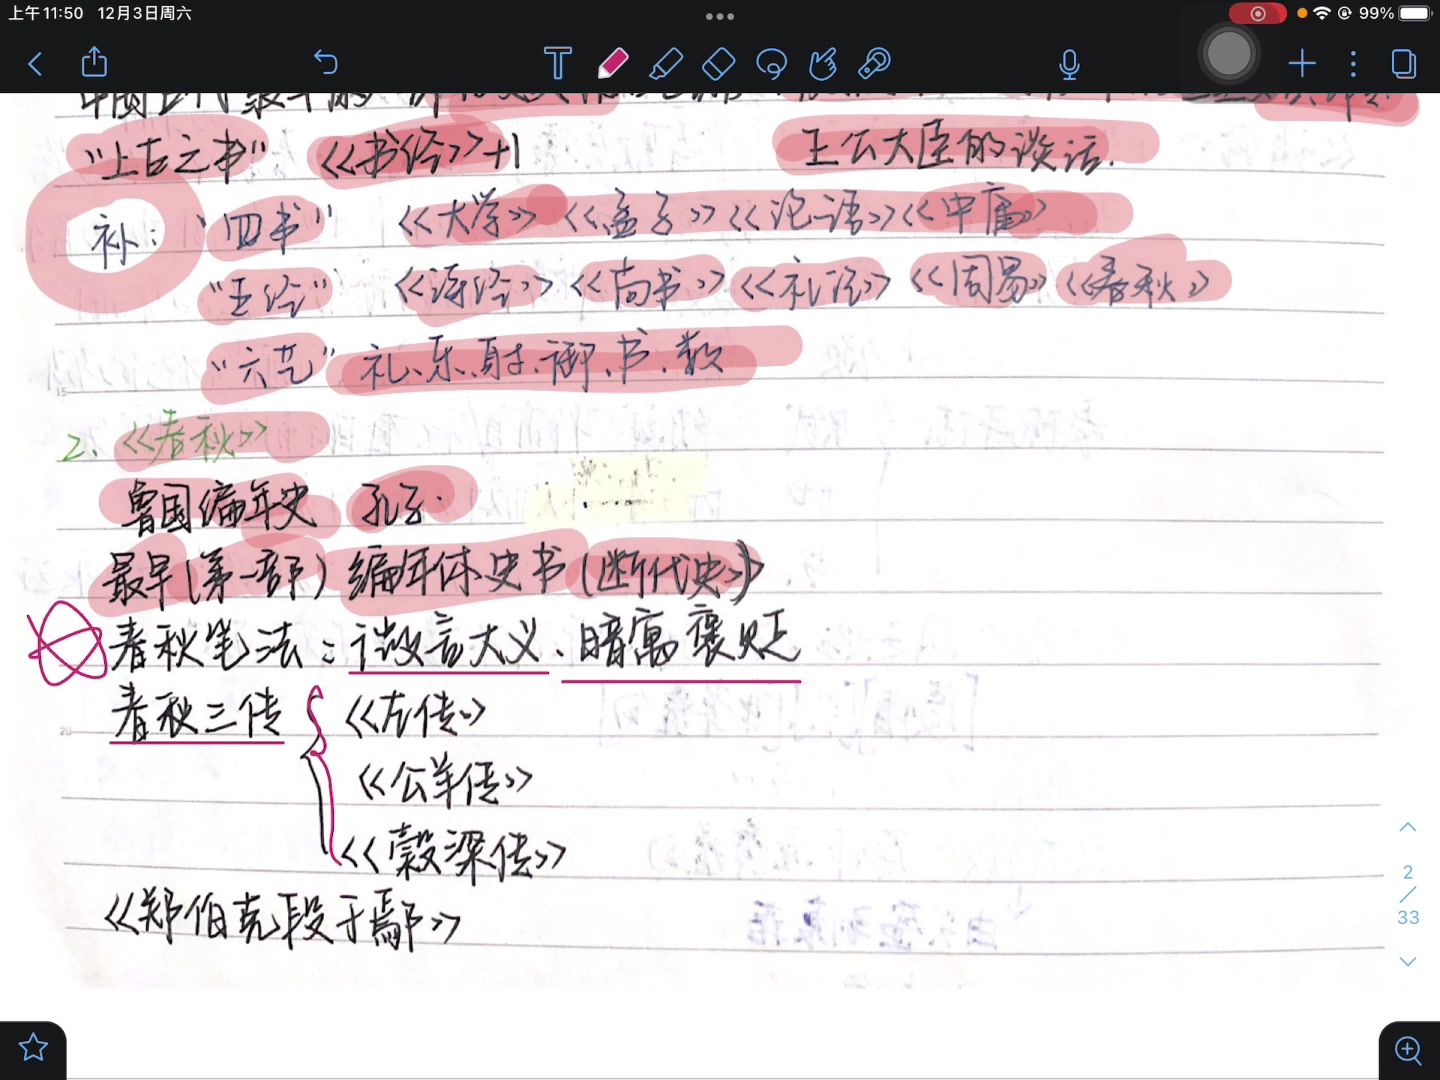 上午11:50 12月3日周六
99%
"上古之书" 《书经》+1 王公大臣的谈话.
补: "四书" 《大学》《孟子》《论语》《中庸》
"五经" 《诗经》《尚书》《礼记》《周易》《春秋》
"六艺" 礼、乐、射、御、书、数
2.《春秋》
鲁国编年史 孔子.
最早(第一部)编年体史书(断代史)
春秋笔法:微言大义、暗寓褒贬
春秋三传 《左传》
《公羊传》
《穀梁传》
《郑伯克段于鄢》
2
/
33